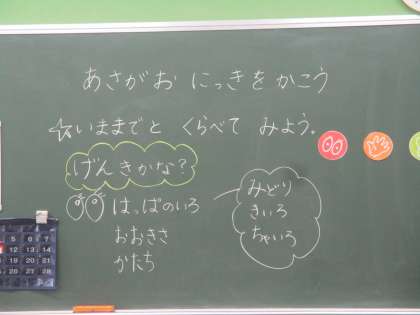 あさがお にっきをかこう
☆いままでと くらべて みよう。
げんきかな?
はっぱのいろ
おおきさ
かたち
みどり
きいろ
ちゃいろ
5 6 7
12 13 14
19 20 21
26 27 28